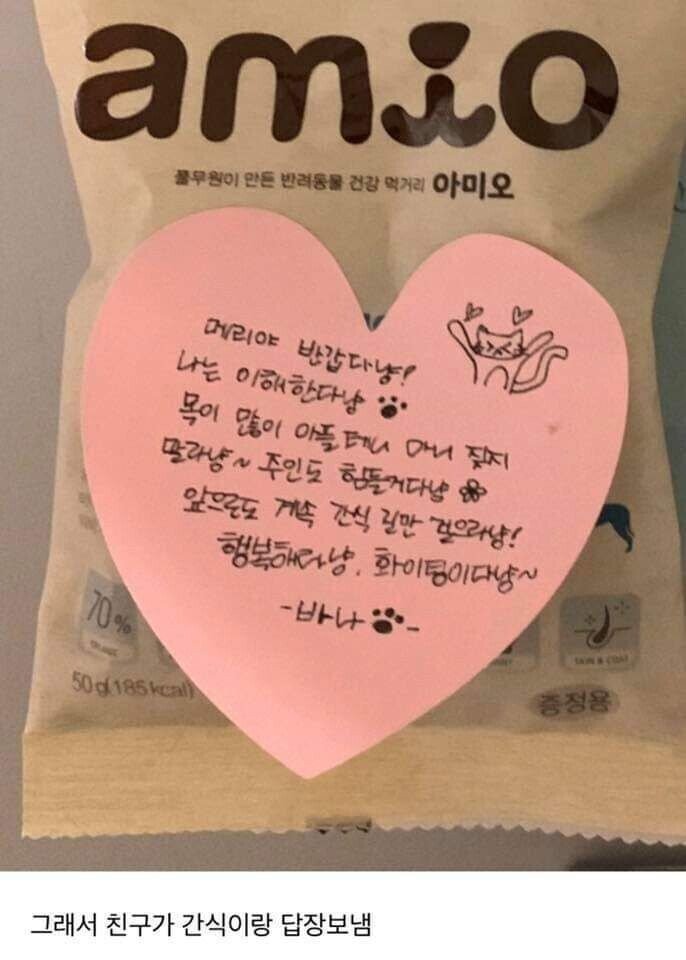 amio
풀무원이 만든 반려동물 건강 먹거리 아미오
메리야 반갑다냥!
나는 이해한다냥
목이 많이 아플테니 마니 짖지
말라냥~ 주인도 힘들거다냥
앞으로도 계속 간식 길만 걸으라냥!
행복해라냥. 화이팅이다냥~
-바나-
70%
50g(185 kcal)
SKIN & COAT
증정용
그래서 친구가 간식이랑 답장보냄